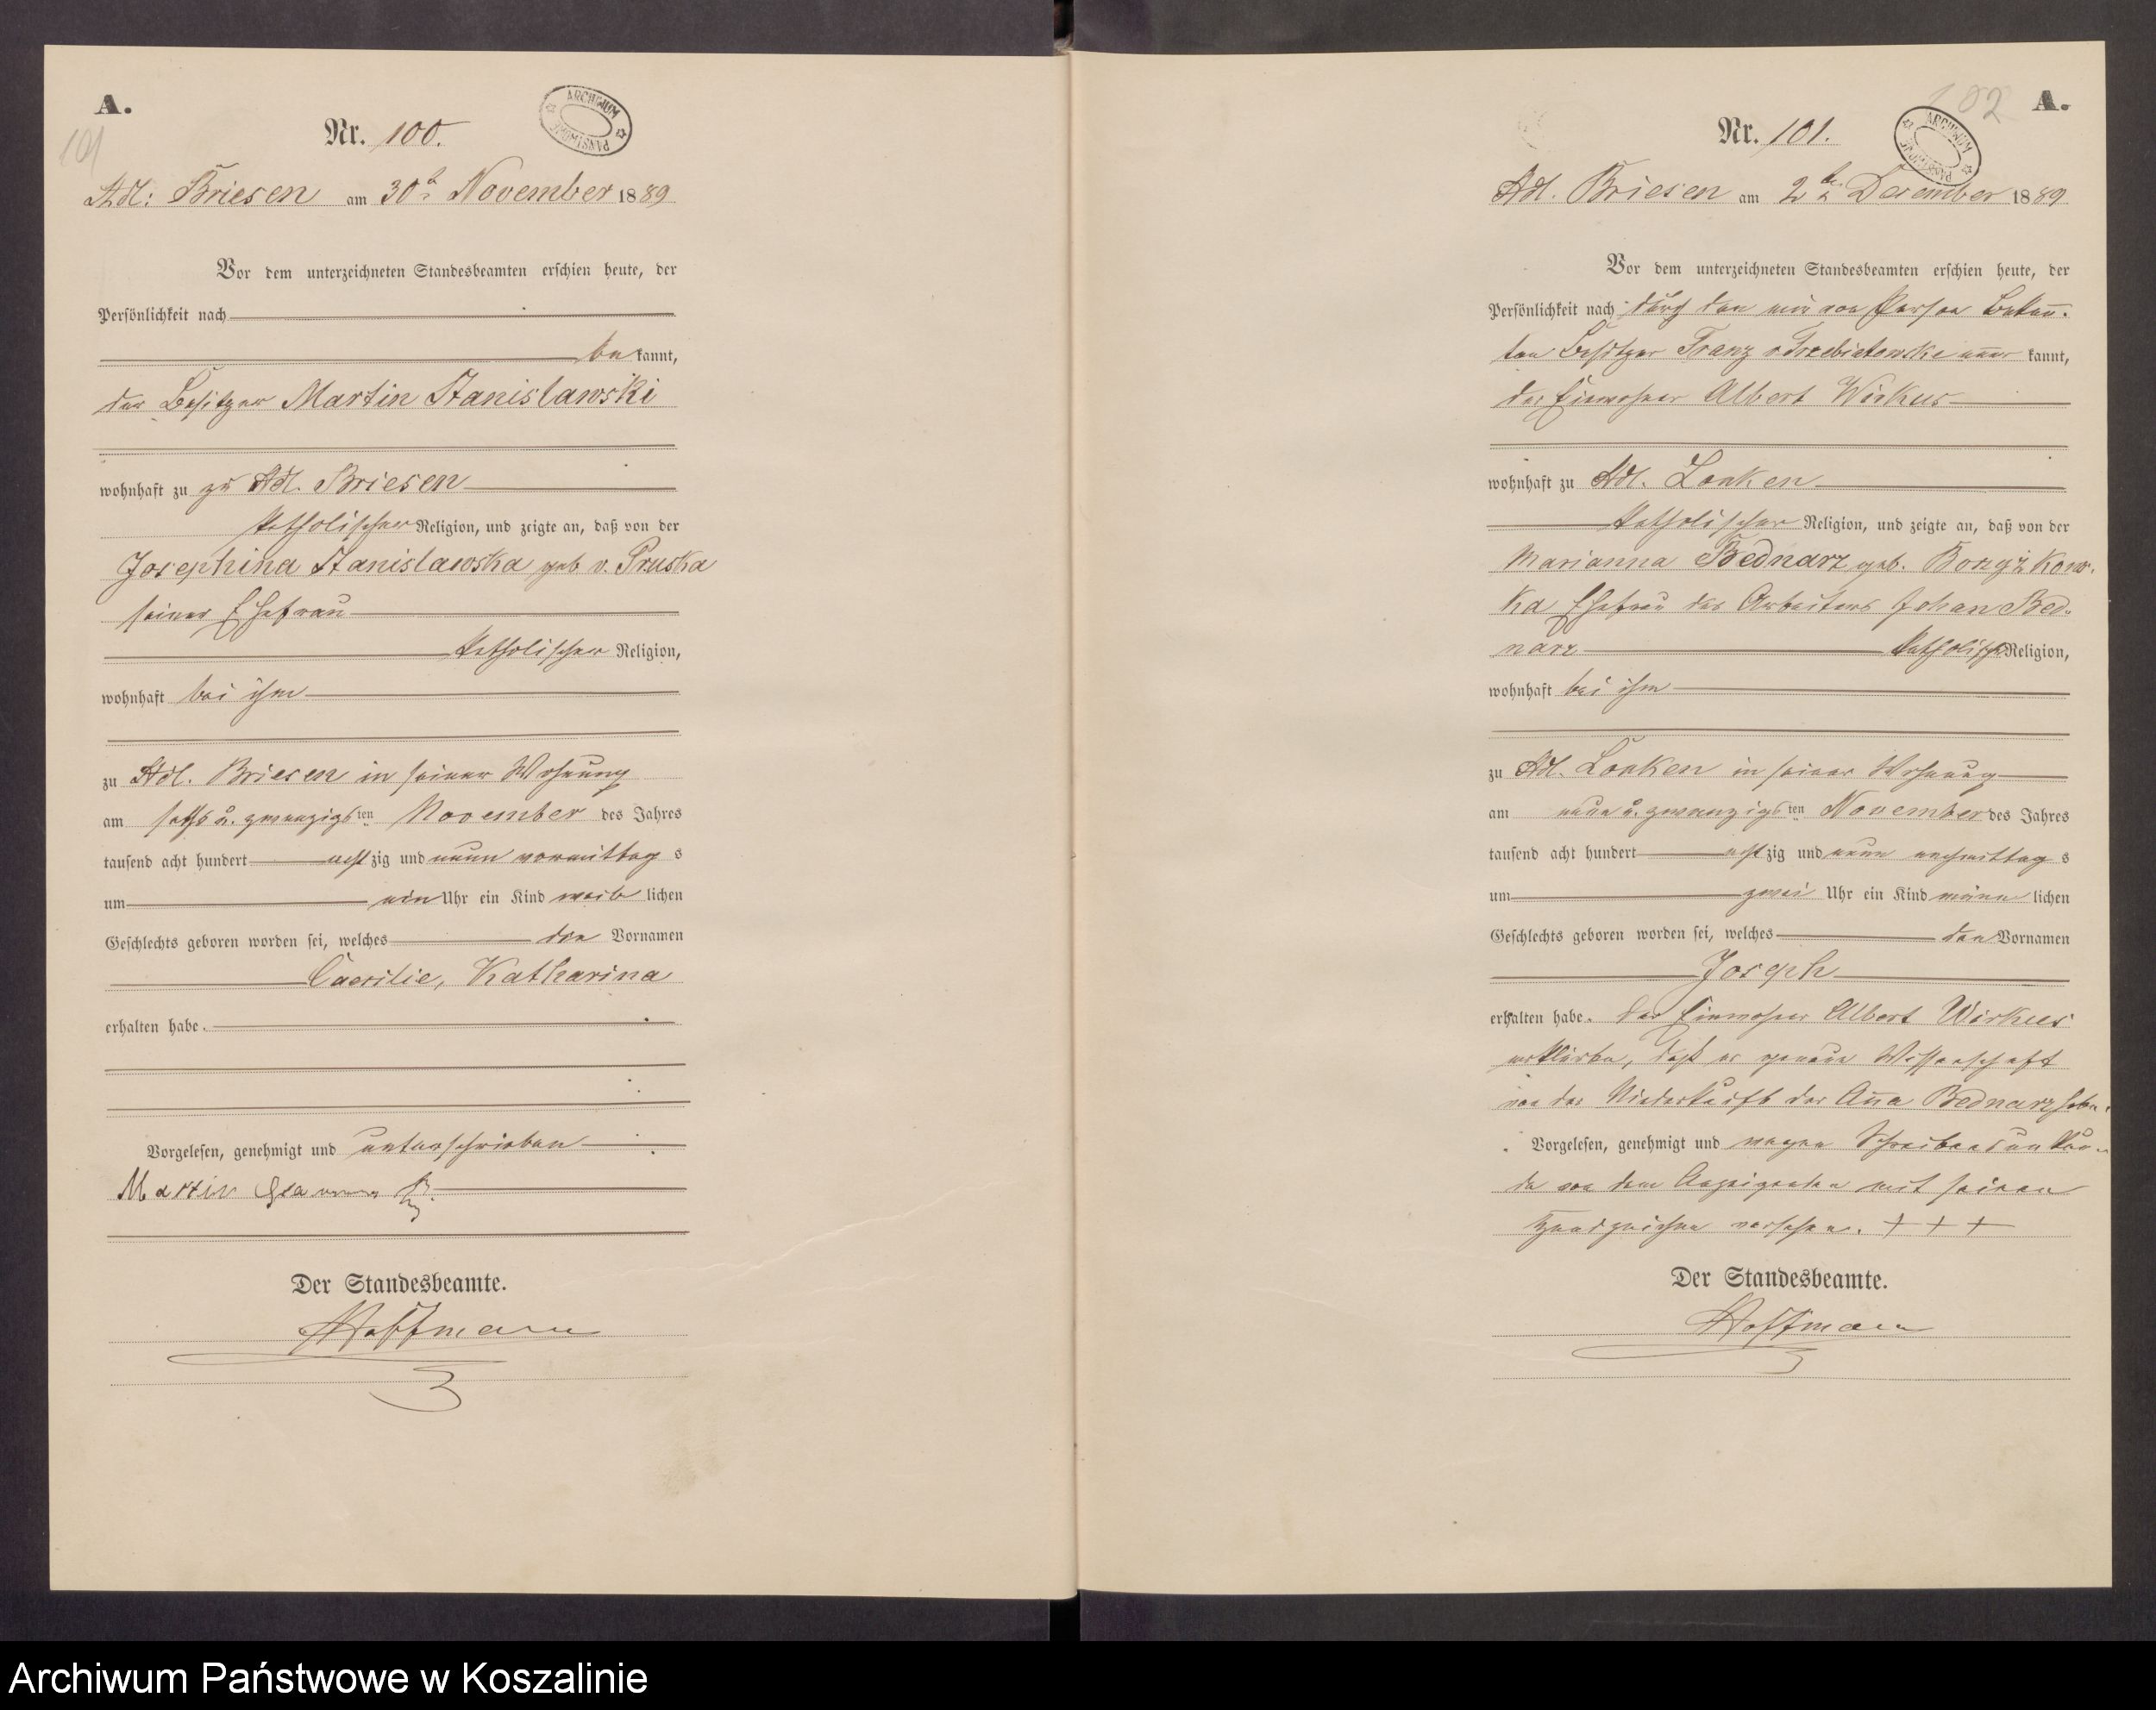 A.
101
Nr. 100.
ARCHIWUM PAŃSTWOWE
Adl: Briesen am 30t November 1889
Vor dem unterzeichneten Standesbeamten erschien heute, der
Persönlichkeit nach
be kannt,
der Besitzer Martin Stanislawski
wohnhaft zu zu Adl. Briesen
katholischer Religion, und zeigte an, daß von der
Josephina Stanislawska geb v. Pruska
seiner Ehefrau
katholischer Religion,
wohnhaft bei ihm
zu Adl. Briesen in seiner Wohnung
am sechs u. zwanzigsten November des Jahres
tausend acht hundert acht zig und neun vormittag s
um ein Uhr ein Kind weib lichen
Geschlechts geboren worden sei, welches die Vornamen
Caecilie, Katharina
erhalten habe.
Vorgelesen, genehmigt und unterschrieben
Martin
Der Standesbeamte.
Hoffmann
102
A.
Nr. 101.
ARCHIWUM PAŃSTWOWE
Adl. Briesen am 2t December 1889
Vor dem unterzeichneten Standesbeamten erschien heute, der
Persönlichkeit nach durch den mir von Person bekann-
ten Besitzer Franz v Trzebiatowski aner kannt,
der Einwohner Albert Wirkus
wohnhaft zu Adl. Lonken
katholischer Religion, und zeigte an, daß von der
Marianna Bednarz geb. Borzyżkow-
ka Ehefrau des Arbeiters Johan Bed-
narz katholisch Religion,
wohnhaft bei ihm
zu Adl. Lonken in seiner Wohnung
am neun u. zwanzigsten November des Jahres
tausend acht hundert acht zig und neun nachmittag s
um zwei Uhr ein Kind männ lichen
Geschlechts geboren worden sei, welches den Vornamen
Joseph
erhalten habe. Der Einwohner Albert Wirkus
erklärte, daß er genaue Wissenschaft
von der Niederkunft der Anna Bednarz habe.
Vorgelesen, genehmigt und wegen Schreibensunkun-
de von dem Anzeigenden mit seinen
Handzeichen versehen. + + +
Der Standesbeamte.
Hoffmann
Archiwum Państwowe w Koszalinie